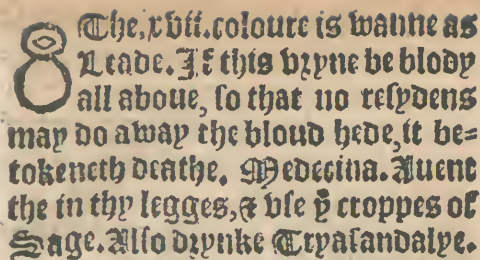 8 The.xvii.coloure is wanne as
Leade.If this vryne be blody
all aboue, so that no resydens
may do away the bloud hede,it be=
tokeneth deathe. Medecina. Auent
the in thy legges,& vse ẏ croppes of
Sage.Also drynke Tryasandalye.